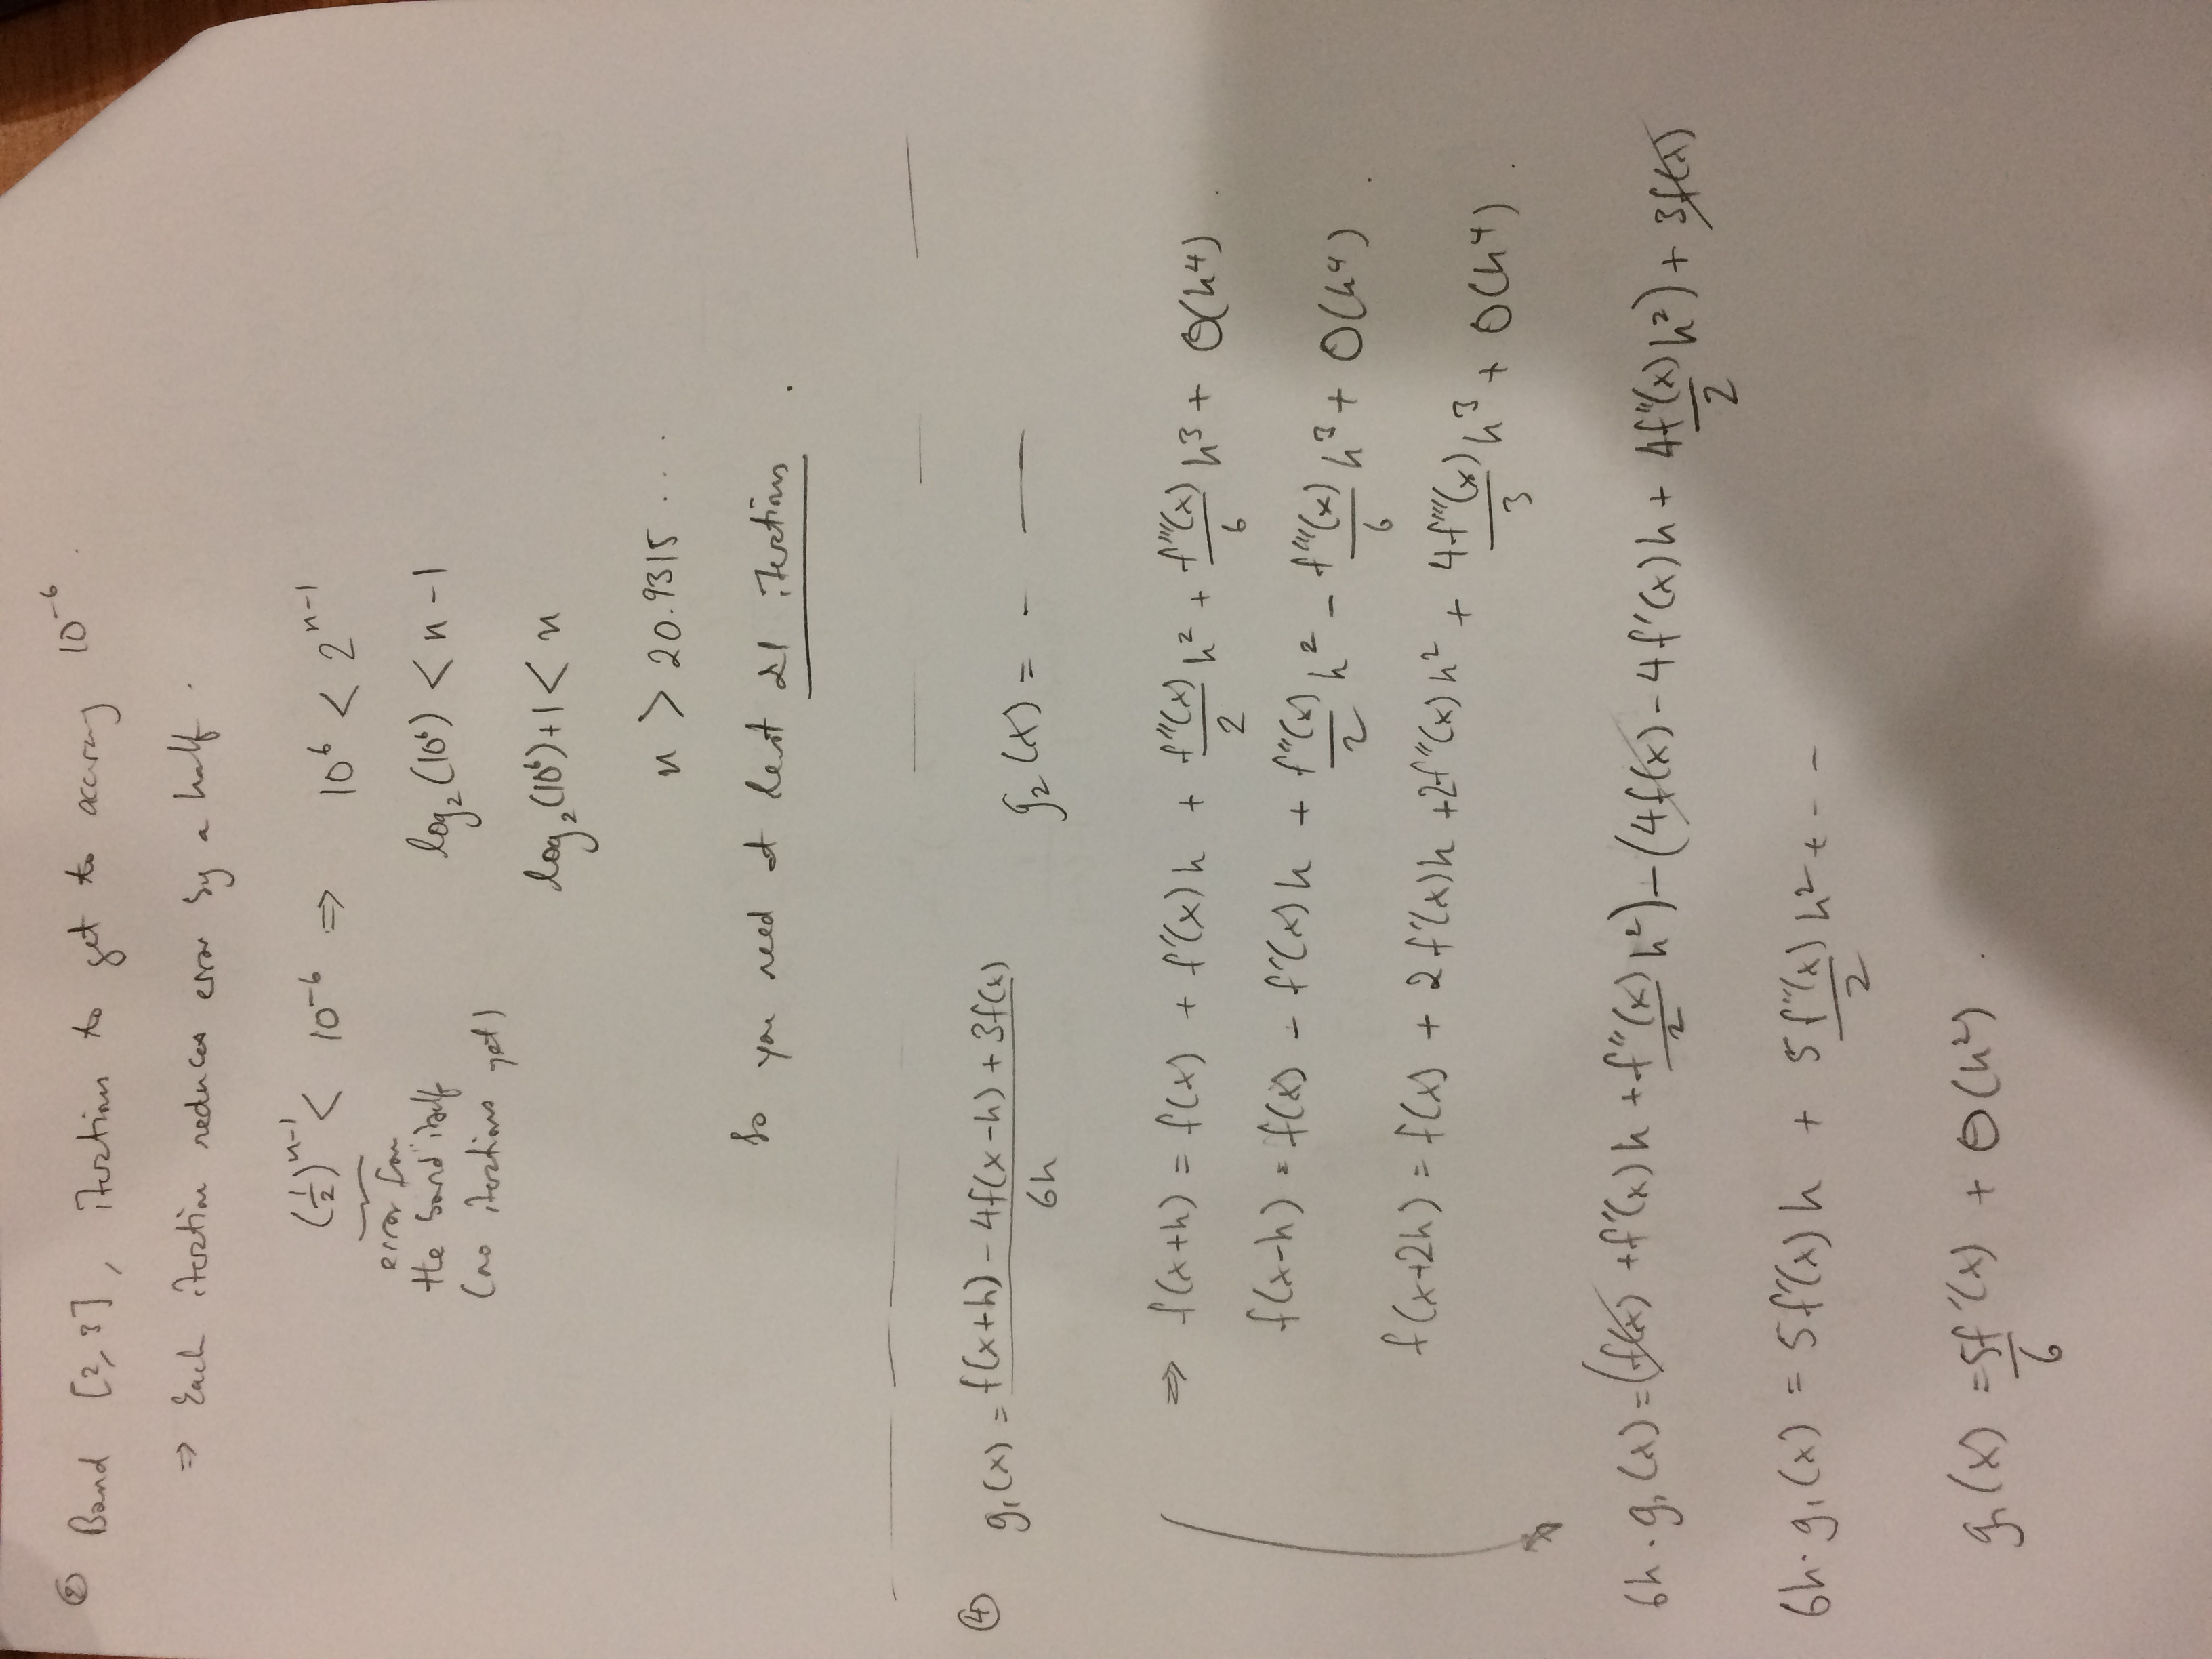 ② Band [2, 3], iterations to get to accuracy 10⁻⁶.
⇒ Each iteration reduces error by a half.
(1/2)ⁿ⁻¹ < 10⁻⁶ ⇒ 10⁶ < 2ⁿ⁻¹
error from
the band itself
(no iterations yet)
log₂(10⁶) < n - 1
log₂(10⁶) + 1 < n
n > 20.9315 ....
So you need at least 21 iterations.
④ g₁(x) = (f(x+h) - 4f(x-h) + 3f(x))/6h g₂(x) = - —
⇒ f(x+h) = f(x) + f'(x)h + f''(x)/2 h² + f'''(x)/6 h³ + O(h⁴).
f(x-h) = f(x) - f'(x)h + f''(x)/2 h² - f'''(x)/6 h³ + O(h⁴).
f(x+2h) = f(x) + 2f'(x)h + 2f''(x)h² + 4f'''(x)/3 h³ + O(h⁴).
6h · g₁(x) = (f(x) + f'(x)h + f''(x)/2 h²) - (4f(x) - 4f'(x)h + 4f''(x)/2 h²) + 3f(x)
6h · g₁(x) = 5f'(x)h + 5f''(x)/2 h² + - -
g₁(x) = 5f'(x)/6 + O(h²).